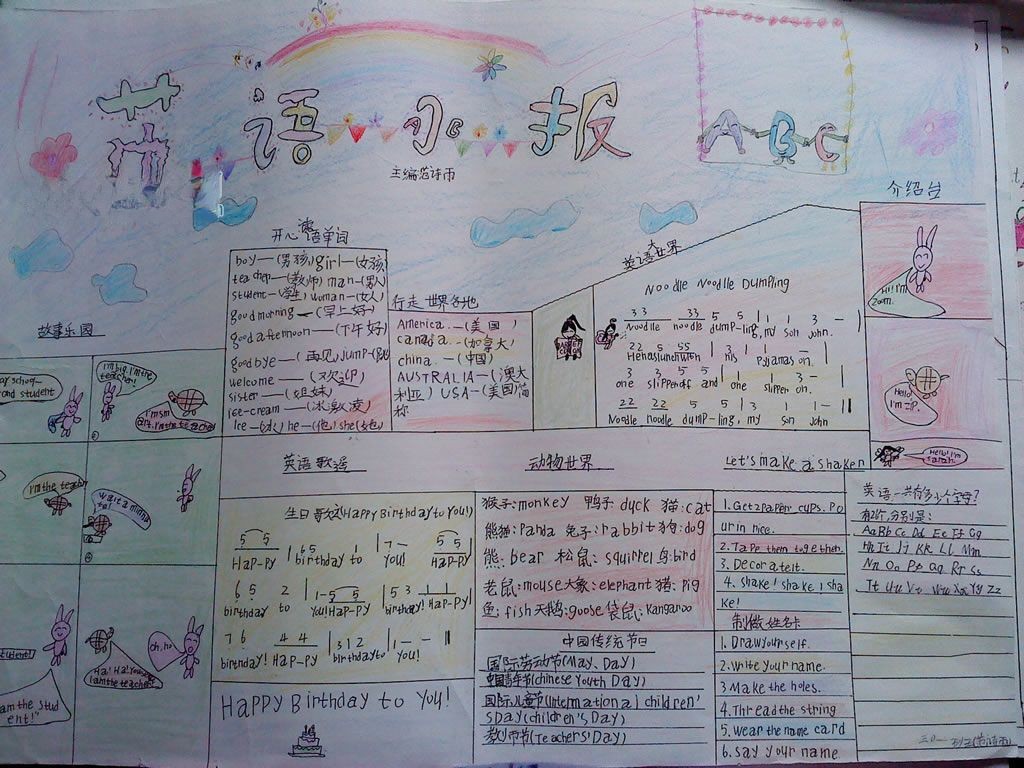 英语小报
ABC
主编范诗雨
介绍台
Hi! I'm
Zoom.
Hello!
I'm Zip.
Hello! I'm
Sarah.
开心英语单词
boy—(男孩)girl—(女孩)
teacher—(教师) man—(男人)
student—(学生) woman—(女人)
good morning—(早上好)
good afternoon—(下午好)
goodbye—(再见)Jump—(跳)
welcome—(欢迎)
sister—(姐妹)
ice-cream—(冰激凌)
Ice—(冰) he—(他) she(她)
行走世界各地
America.—(美国)
canada.—(加拿大)
china.—(中国)
AUSTRALIA—(澳大
利亚) USA—(美国)简
称
英语大世界
Noodle Noodle Dumpling
3 3 33 5 5 | 1 1 3 — |
Noodle noodle dump-ling, my son John.
22 5 55 | 3 3 1 — |
He has lunch with his pyjamas on.
3 3 5 5 5 | 1 1 3 — |
one slipper off and one slipper on.
22 22 5 5 | 3 1 1 — ||
Noodle noodle dump-ling, my son John
故事乐园
I'm big. I'm the
teacher!
I'm the teacher
wait a minute
Oh, no
Ha! Ha! You
I am the teacher
student!
am the stud
ent!"
英语歌谣
生日歌(Happy Birthday to You!)
5 5 | 6 5 1 | 7 — 5 5
HaP-PY birthday to you! HaP-PY
6 5 2 | 1 — 5 5 | 5 3 1 1
birthday to you! HaP-PY birthday! HaP-PY
7 6 4 4 | 3 1 2 | 1 — — ||
birthday! HaP-PY birthday to you!
HAPPY Birthday to You!
动物世界
猴子:monkey 鸭子:duck 猫:cat
熊猫:Panda 兔子:rabbit 狗:dog
熊:bear 松鼠:squirrel 鸟:bird
老鼠:mouse 大象:elephant 猪:Pig
鱼:fish 天鹅:goose 袋鼠:Kangaroo
中国传统节日
国际劳动节(May、Day)
中国青年节(chinese Youth Day)
国际儿童节(International children'
SDay(children's、Day)
教师节(Teachers'Day)
Let's make a shaker
1. Get 2 paper cups. Po
ur in rice.
2. Tape them together.
3. Decorate it.
4. shake! shake! sha
ke!
制做姓名卡
1. Draw yourself.
2. write your name.
3 Make the holes.
4. Thread the string
5. wear the name card
6. say your name
英语一共有多少个字母?
有26个,分别是:
Aa Bb Cc Dd Ee Ff Gg
Hh Ii Jj KK LL Mm
Nn Oo Pp Qq Rr Ss
Tt Uu Vv Ww Xx Yy Zz